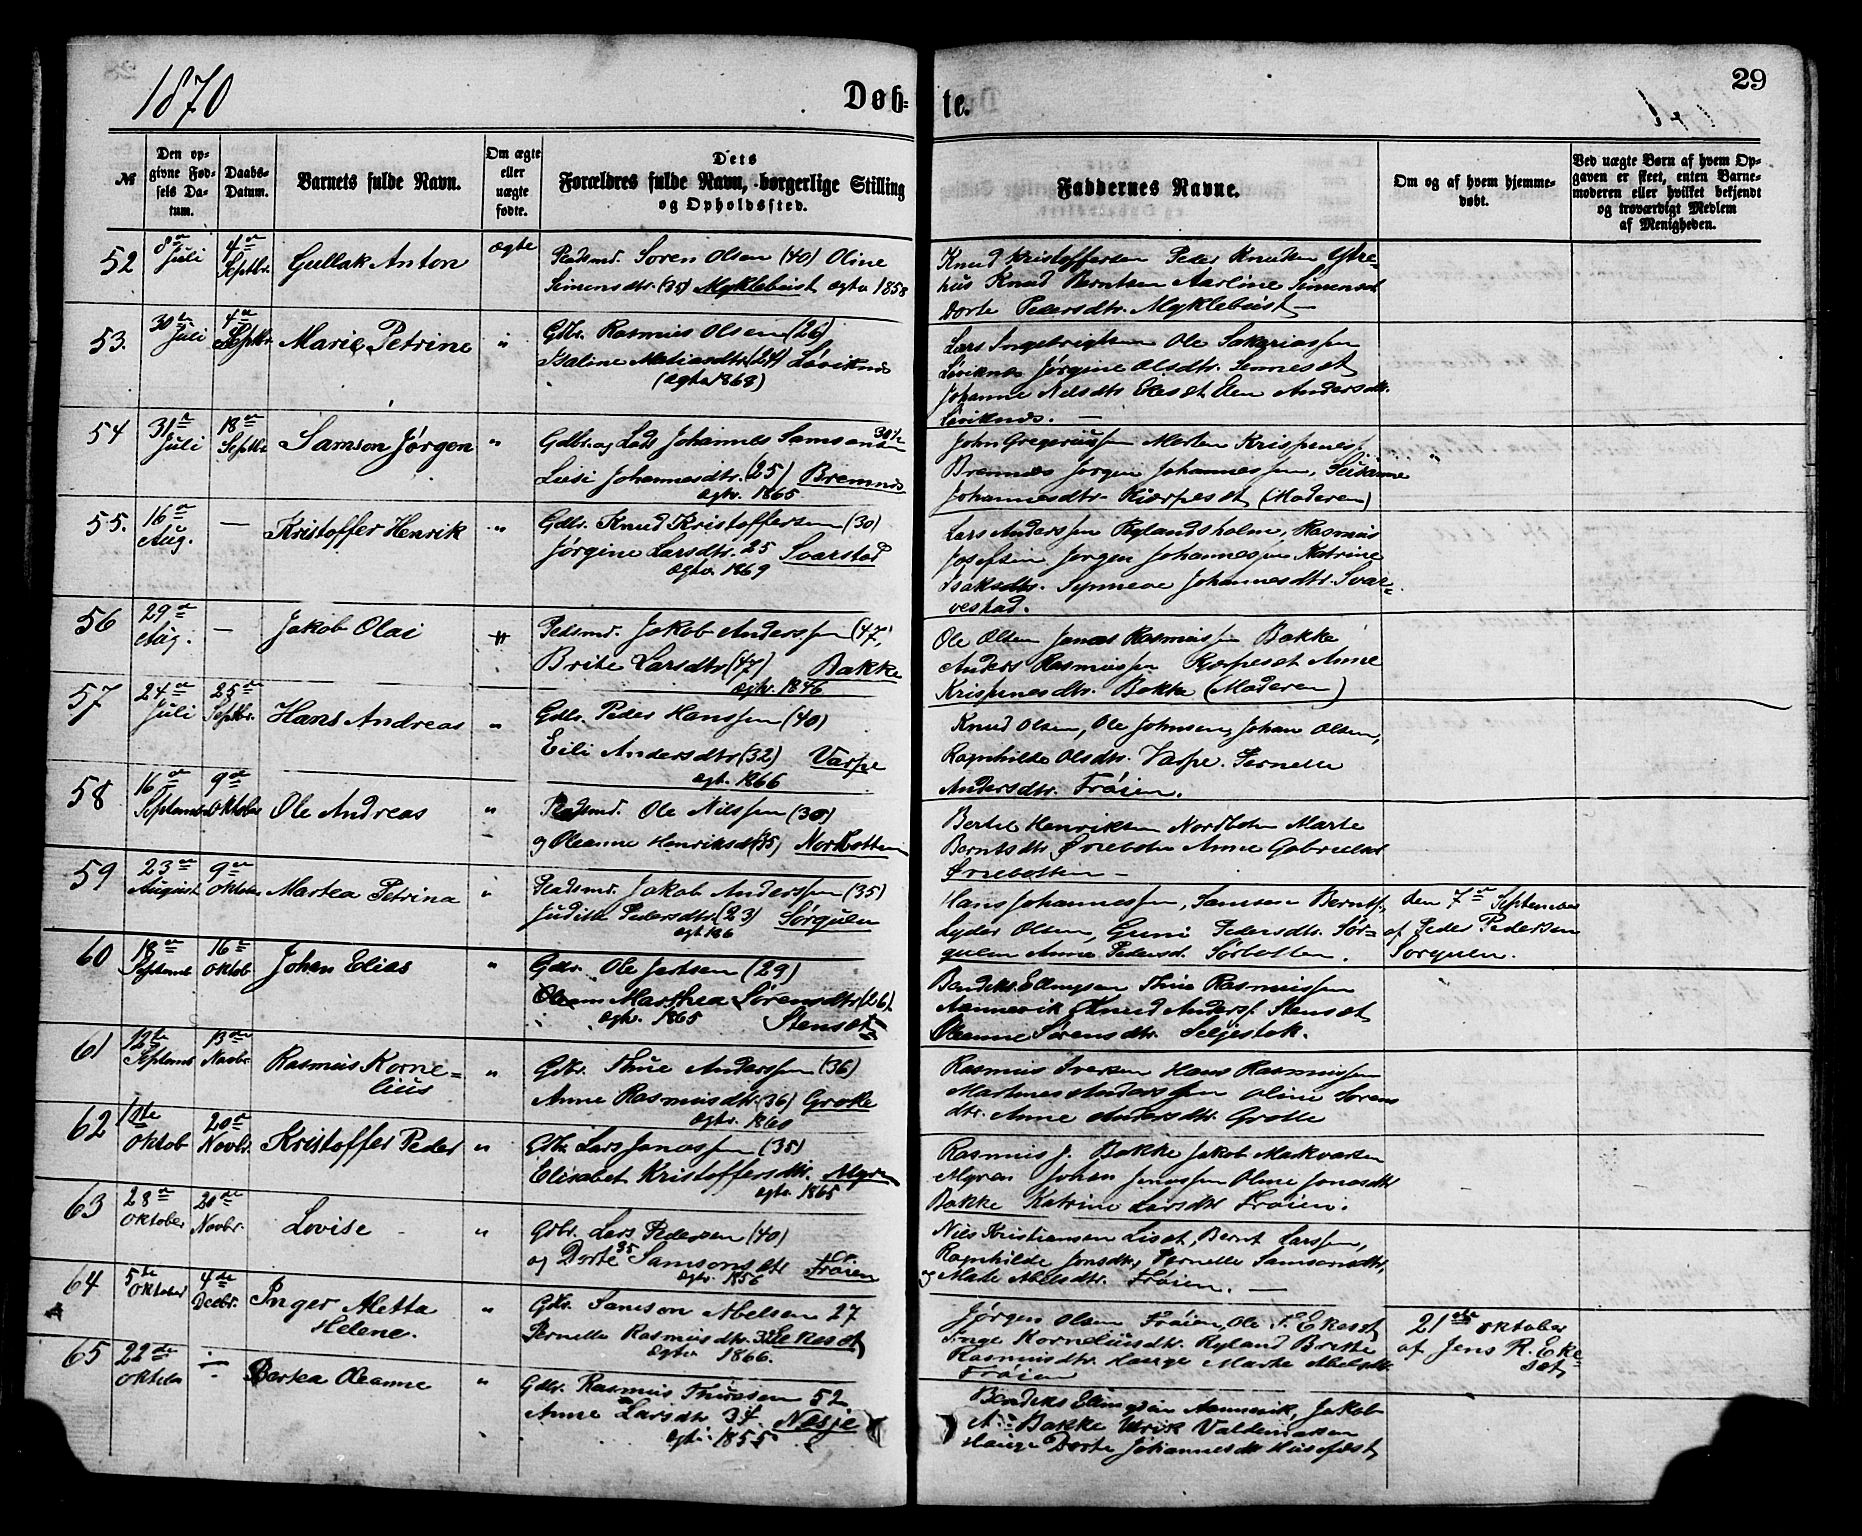 1870
Døb-
te.
29
№
Den op-
givne Fød-
sels Da-
tum.
Daabs-
Datum.
Barnets fulde Navn.
Om ægte
eller
uægte
fødte.
Dets
Forældres fulde Navn, borgerlige Stilling
og Opholdssted.
Faddernes Navne.
Om og af hvem hjemme-
døbt.
Ved uægte Børn af hvem Op-
gaven er skeet, enten Barne-
moderen eller hvilket bekjendt
og troværdigt Medlem
af Menigheden.
52 8de Juli 4de Septbr. Gullak Anton ægte
Pladsmd. Søren Olsen (40) Oline
Simonsdtr. (35) Myklebust ægtv 1858
Knud Kristoffersen Peder Knudsen Ytre-
hus Knud Berntsen Aarline Simonsd
Dorte Pedersdtr. Myklebust
53. 30te Juli 4de Septbr. Marie Petrine "
Gdbr. Rasmus Olsen (26)
Isaline Matiasdtr. (24) Løviknes
(ægtv 1868)
Lars Ingebrigtsen Ole Sakariassen
Løviknes Jørgine Olsdtr. Senneset
Johanne Nilsdtr. Ekeset Elen Andersdtr.
Løviknes. —
54 31te Juli 18de Septbr Samson Jørgen "
Gdbr. og Lods Johannes Samsons
Lusi Johannesdtr. (25) Bremnes
ægtv. 1865
John Gregoriussen Morten Krispines
Bremnes Jørgen Johannessen,
Johannesdtr. Kjærpeset (Moderen)
55. 16de Aug. — Kristoffer Henrik "
Gdbr. Knud Kristoffersen (30)
Jørgine Larsdtr. 25 Svarstad
ægtv. 1869
Lars Anderssen Rylandsholm, Rasmus
Josefsen Jørgen Johannessen Katrine
Isaksdtr. Synneve Johannesdtr. Svar-
vestad.
56 29de Aug. — Jakob Olai "
Pladsmd. Jakob Anderssen (47)
Brite Larsdtr (47) Bakke
ægtv. 1846
Ole Olsen Jonas Rasmussen Bakke
Anders Rasmussen Kjærpeset Anne
Krispinesdtr. Bakke (Moderen)
57 24de Juli 25de Septbr. Hans Andreas "
Gdbr. Peder Hanssen (40)
Eili Andersdtr (32) Varpe
ægt. 1866
Knud Olsen, Ole Johnsen, Johan Olsen,
Ragnhilde Olsdtr. Varpe. Pernelle
Andersdtr. Frøien.
58 16de Septemb 9de Oktober Ole Andreas "
Pladsmd. Ole Nilssen (30)
og Oleanne Henriksdtr (35) Nordbotten
Bertil Henriksen Nordboten Marte
Berntsdtr. Ørneboten Anne Gabrielsd
Ørnebotten —
59 23de August 9de Oktober Martea Petrina "
Pladsmd. Jakob Anderssen (35)
Judith Pedersdtr (23) Sørgulen
ægt. 186
Hans Johannessen, Samson Berntsen,
Lyder Olsen, Guni Pedersdtr. Sør-
gulen Anne Pedersd. Sørbotten.
den 7de September
af Peder Pedersen
Sørgulen.
60 18de Septemb 16de Oktob Johan Elias "
Gdbr. Ole Jertsen (29)
Marthea Sørensdtr (26)
ægtv. 1865 Stenset
Bendiks Ellingsen Thue Rasmussen
Aannevik Knud Anders. Stenset
Oleanne Sørensdtr. Seljestok.
61 12te Septemb 13de Novbr. Rasmus Korne-
lius "
Gdbr. Thue Anderssen (36)
Anne Rasmusdtr (36) Grotle
ægtv. 1860
Rasmus Iversen Hans Rasmussen
Martines Anderssen Oline Sørens
dtr. Anne Andersdtr. Grotle
62 1ste Oktob 20de Novbr. Kristoffer Peder "
Gdbr. Lars Jonassen (35)
Elisabet Kristoffersdtr. Myren
ægtv. 1865
Rasmus J. Bakke Jakob Markvarsen
Myren Johan Jonassen Oline Jonasdtr
Bakke Katrine Larsdtr Frøien.
63 28de Oktober 20de Novbr. Lovise "
Gdbr. Lars Pedersen (40)
og Dorte 35 Samsonsdtr Frøien
ægtv. 1856
Nils Kristiansen Liset, Bernt Larssen,
Ragnhilde Jonsdtr. Pernelle Samsonsdtr,
og Mate Abelsdtr. Frøien. —
64 5te Oktober 4de Decbr. Inger Aletta
Helene. "
Gdbr. Samson Abelsen 27
Pernelle Rasmusdtr. 32 Ekeset
ægtv. 1866.
Jørgen Olsen Frøien, Ole S. Ekeset
Inge Korneliusdtr. Ryland Britte
Rasmusdtr. Hauge Marta Abelsdtr.
Frøien
21de Oktober
af Jens R. Eke-
set,
65 22de Oktober — Bertea Oleanne "
Gdbr. Rasmus Thuesen 52
Anne Larsdtr 34. Nesje
ægtv. 1855
Bendiks Ellingsen Aannevik, Jakob
A. Bakke Ulrik Valdemarsen
Hauge Dorte Johannesdtr Husefest